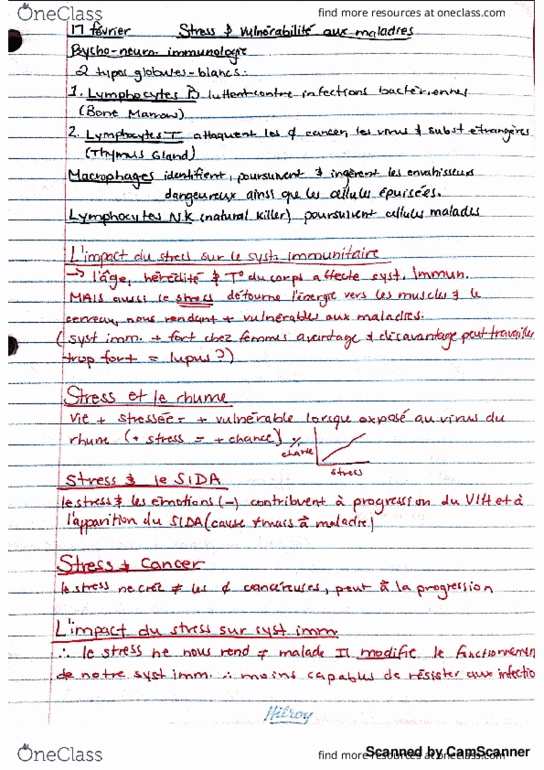 OneClass find more resources at oneclass.com
17 février Stress & vulnérabilité aux maladies
Psycho-neuro-immunologie
2 types globules-blancs:
1. Lymphocytes B luttent contre infections bactériennes
(Bone Marrow)
2. Lymphocytes T attaquent les ¢ cancer, les virus & subst étrangères
(Thymus Gland)
Macrophages identifient, poursuivent & ingèrent les envahisseurs
dangeureux ainsi que les cellules épuisées.
Lymphocytes NK (natural killer) poursuivent cellules malades
L'impact du stress sur le syst. immunitaire
→ l'âge, hérédité & T° du corps affecte syst. immun.
MAIS aussi le stress détourne l'énergie vers les muscles & le
cerveux, nous rendant + vulnérables aux maladies.
(syst imm. + fort chez femmes avantage & désavantage peut travailler
trop fort = lupus?)
Stress et le rhume
Vie + stressée = + vulnérable lorsque exposé au virus du
rhume (+ stress = + chance) %
chance
stress
Stress & le SIDA
le stress & les émotions (-) contribuent à progression du VIH et à
l'apparition du SIDA (cause ≠ mais à maladie)
Stress & Cancer
le stress ne créé ≠ les ¢ cancéreuses, peut à la progression
L'impact du stress sur syst imm
∴ le stress ne nous rend ≠ malade Il modifie le fonctionnemen
de notre syst imm ∴ moins capables de résister aux infectio
Hilroy
OneClass find more resources at oneclass.com
Scanned by CamScanner